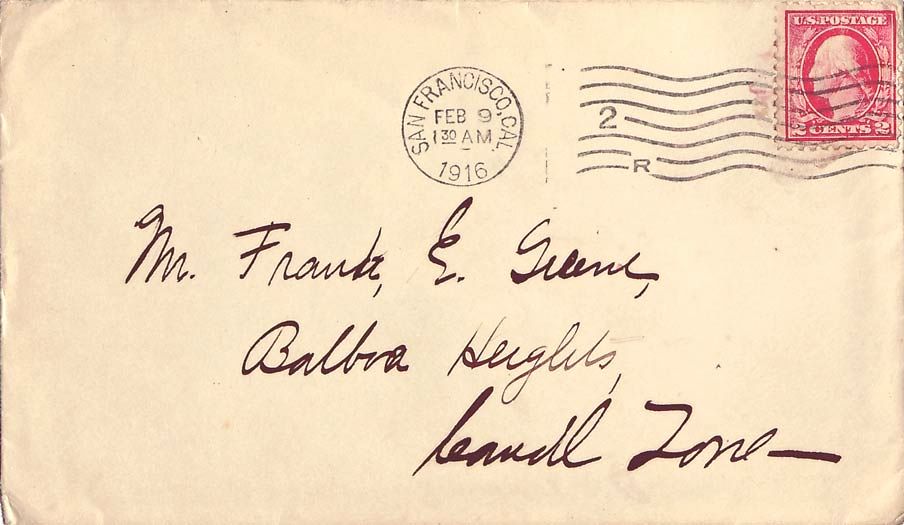 SAN FRANCISCO, CAL.
FEB 9
1 30 AM
1916
2
R
U.S. POSTAGE
2 CENTS 2
Mr. Frank, E. Greene,
Balboa Heights,
Canal Zone